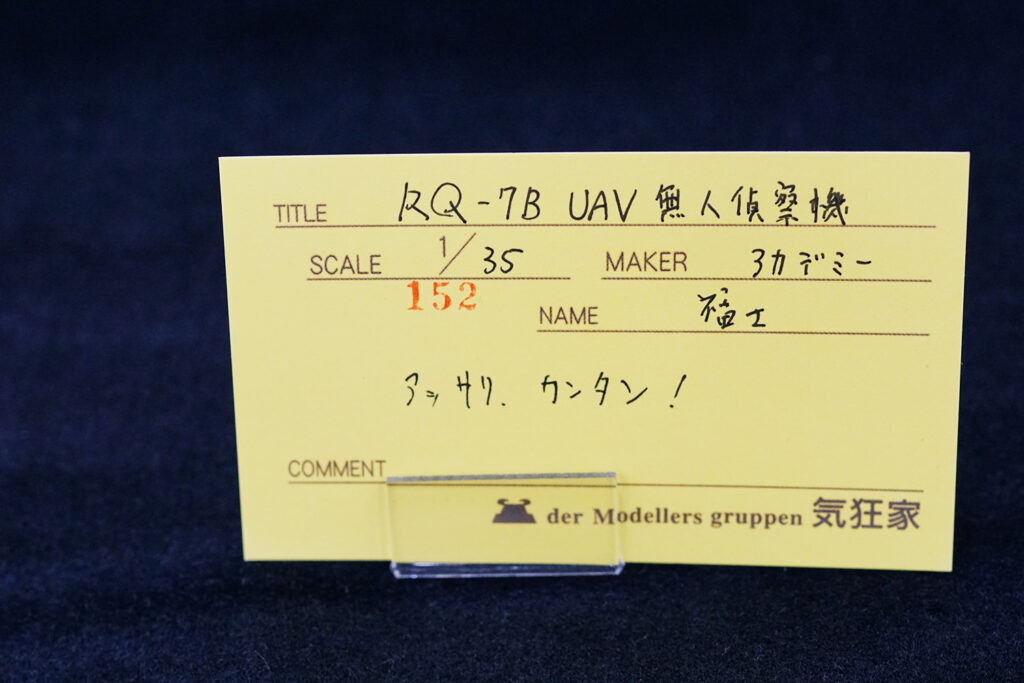 TITLE RQ-7B UAV 無人偵察機
SCALE 1/35 MAKER アカデミー
152
NAME 福士
アッサリ、カンタン!
COMMENT
der Modellers gruppen 気狂家